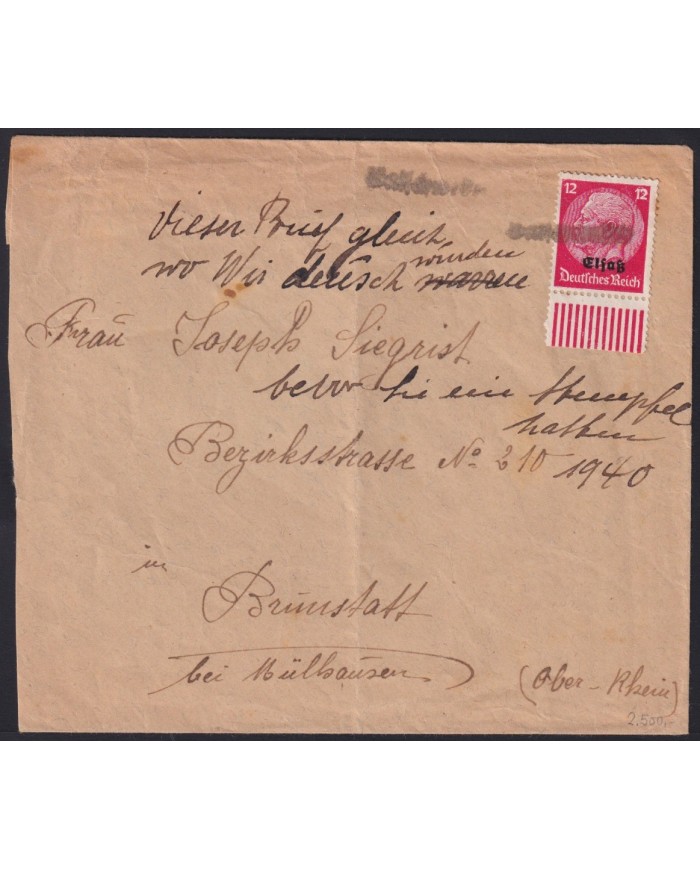 12 12
Elsaß
Deutsches Reich
dieser Brief gleich
wo Wir deusch wurden warren
Frau Joseph Siegrist
bevor sie ein Stempfel
hatten
Bezirksstrasse No 210 1940
in
Brunstatt
bei Mülhausen
(Ober-Rhein)
2.500,-